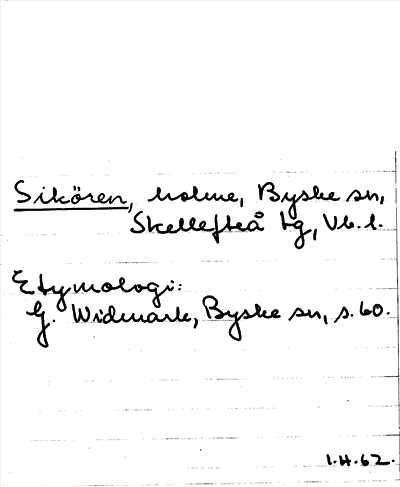 Sikören, holme, Byske sn,
Skellefteå tg, Vb. l.
Etymologi:
G. Widmark, Byske sn, s. 60.
1.H.62.